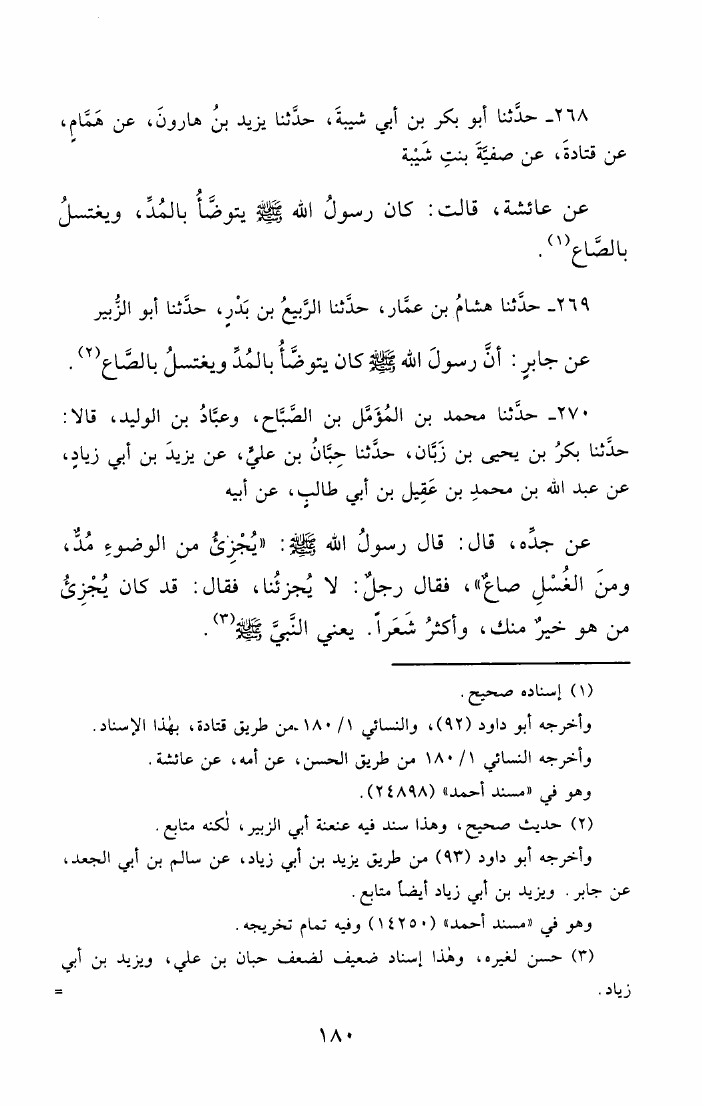 ٢٦٨ـ حدَّثنا أبو بكر بن أبي شيبةَ، حدَّثنا يزيد بنُ هارونَ، عن هَمَّامٍ،
عن قتادةَ، عن صفيَّةَ بنتِ شَيْبة
عن عائشة، قالت: كان رسولُ الله ﷺ يتوضَّأُ بالمُدِّ، ويغتسلُ
بالصَّاع(١).
٢٦٩ـ حدَّثنا هشامُ بن عمَّار، حدَّثنا الرَّبيعُ بن بَدْرٍ، حدَّثنا أبو الزُّبير
عن جابرٍ: أنَّ رسولَ الله ﷺ كان يتوضَّأُ بالمُدِّ ويغتسلُ بالصَّاع(٢).
٢٧٠ـ حدَّثنا محمد بن المُؤَمَّل بن الصَّبَّاح، وعبَّادُ بن الوليد، قالا:
حدَّثنا بكرُ بن يحيى بن زَبَّان، حدَّثنا حِبَّانُ بن عليٍّ، عن يزيدَ بن أبي زيادٍ،
عن عبد الله بن محمدِ بن عَقِيل بن أبي طالبٍ، عن أبيه
عن جدِّه، قال: قال رسولُ الله ﷺ: «يُجْزِئُ من الوضوءِ مُدٌّ،
ومنَ الغُسْلِ صاعٌ»، فقال رجلٌ: لا يُجزئُنا، فقال: قد كان يُجْزِئُ
من هو خيرٌ منك، وأكثرُ شَعَراً. يعني النَّبيَّ ﷺ(٣).
(١) إسناده صحيح.
وأخرجه أبو داود (٩٢)، والنسائي ١/ ١٨٠ من طريق قتادة، بهٰذا الإسناد.
وأخرجه النسائي ١/ ١٨٠ من طريق الحسن، عن أمه، عن عائشة.
وهو في «مسند أحمد» (٢٤٨٩٨).
(٢) حديث صحيح، وهذا سند فيه عنعنة أبي الزبير، لٰكنه متابع.
وأخرجه أبو داود (٩٣) من طريق يزيد بن أبي زياد، عن سالم بن أبي الجعد،
عن جابر. ويزيد بن أبي زياد أيضاً متابع.
وهو في «مسند أحمد» (١٤٢٥٠) وفيه تمام تخريجه.
(٣) حسن لغيره، وهٰذا إسناد ضعيف لضعف حبان بن علي، ويزيد بن أبي
زياد. =
١٨٠